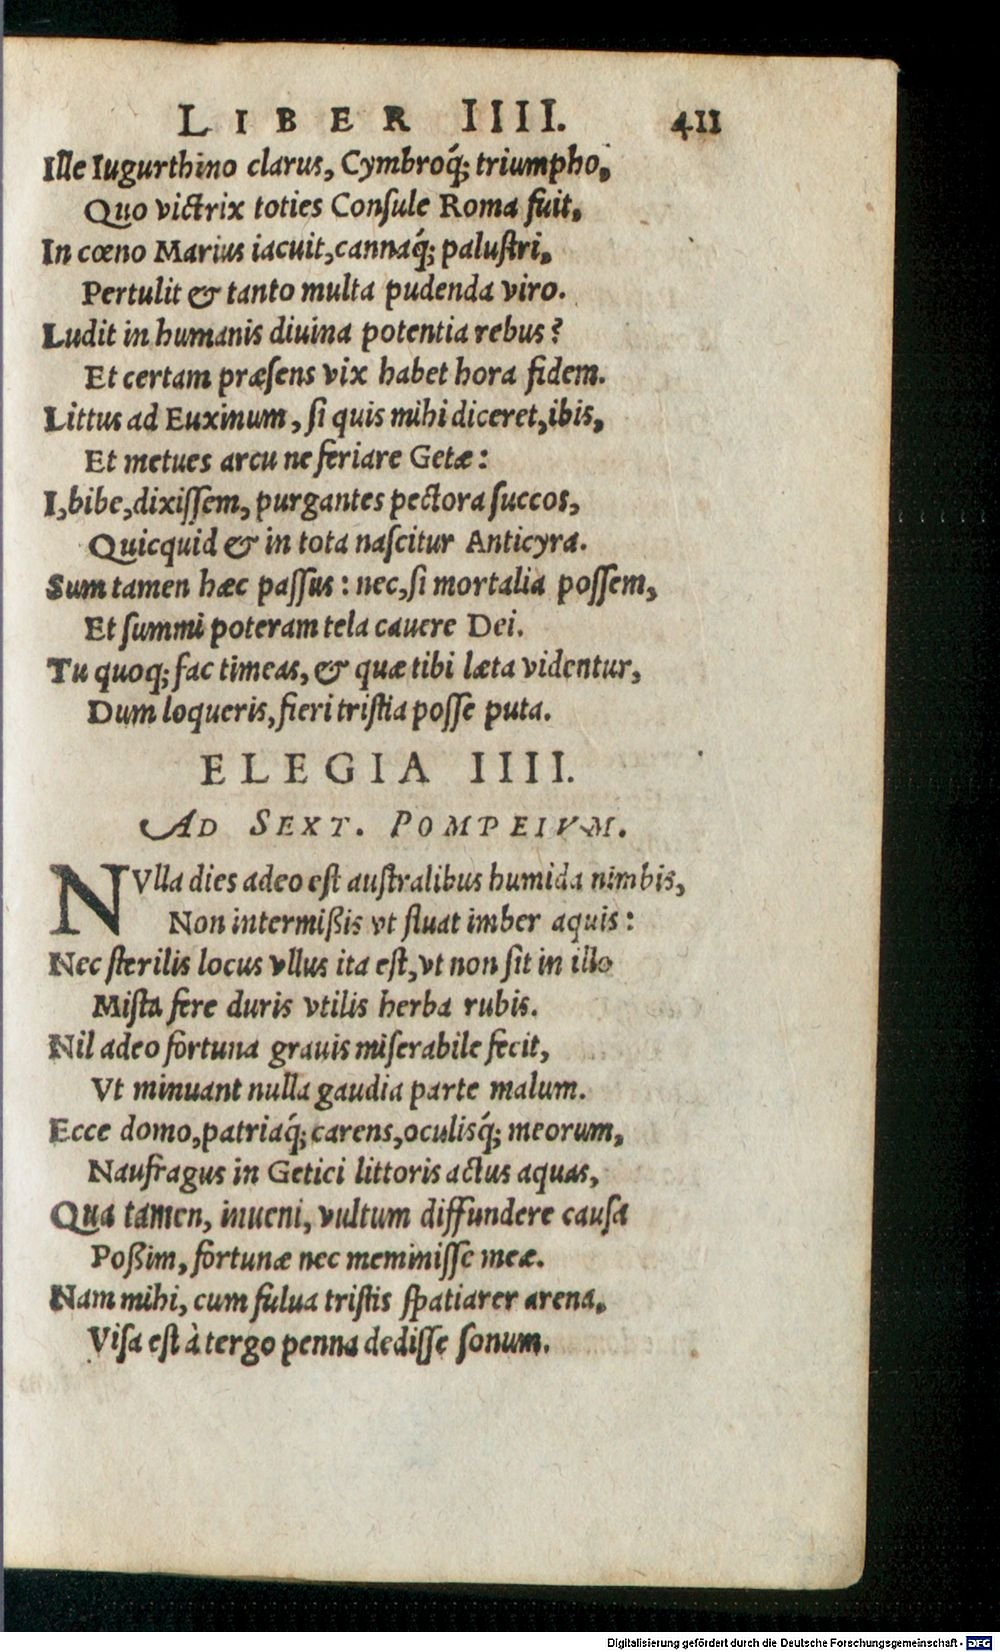 LIBER IIII. 411
Ille Iugurthino clarus, Cymbroq́; triumpho,
Quo victrix toties Conſule Roma fuit,
In cœno Marius iacuit, cannaq́; paluſtri,
Pertulit & tanto multa pudenda viro.
Ludit in humanis diuina potentia rebus?
Et certam præſens vix habet hora fidem.
Littus ad Euxinum, ſi quis mihi diceret, ibis,
Et metues arcu ne feriare Getæ:
I, bibe, dixiſſem, purgantes pectora ſuccos,
Quicquid & in tota naſcitur Anticyra.
Sum tamen hæc paſſus: nec, ſi mortalia poſſem,
Et ſummi poteram tela cauere Dei.
Tu quoq; fac timeas, & quæ tibi læta videntur,
Dum loqueris, fieri triſtia poſſe puta.
ELEGIA IIII.
AD SEXT. POMPEIVM.
NVlla dies adeo eſt auſtralibus humida nimbis,
Non intermißis vt fluat imber aquis:
Nec ſterilis locus vllus ita eſt, vt non ſit in illo
Miſta fere duris vtilis herba rubis.
Nil adeo fortuna grauis miſerabile fecit,
Vt minuant nulla gaudia parte malum.
Ecce domo, patriaq́; carens, oculisq́; meorum,
Naufragus in Getici littoris actus aquas,
Qua tamen, inueni, vultum diffundere cauſa
Poßim, fortunæ nec meminiſſe meæ.
Nam mihi, cum fulua triſtis ſpatiarer arena,
Viſa eſt à tergo penna dediſſe ſonum.
Digitalisierung gefördert durch die Deutsche Forschungsgemeinschaft - DFG